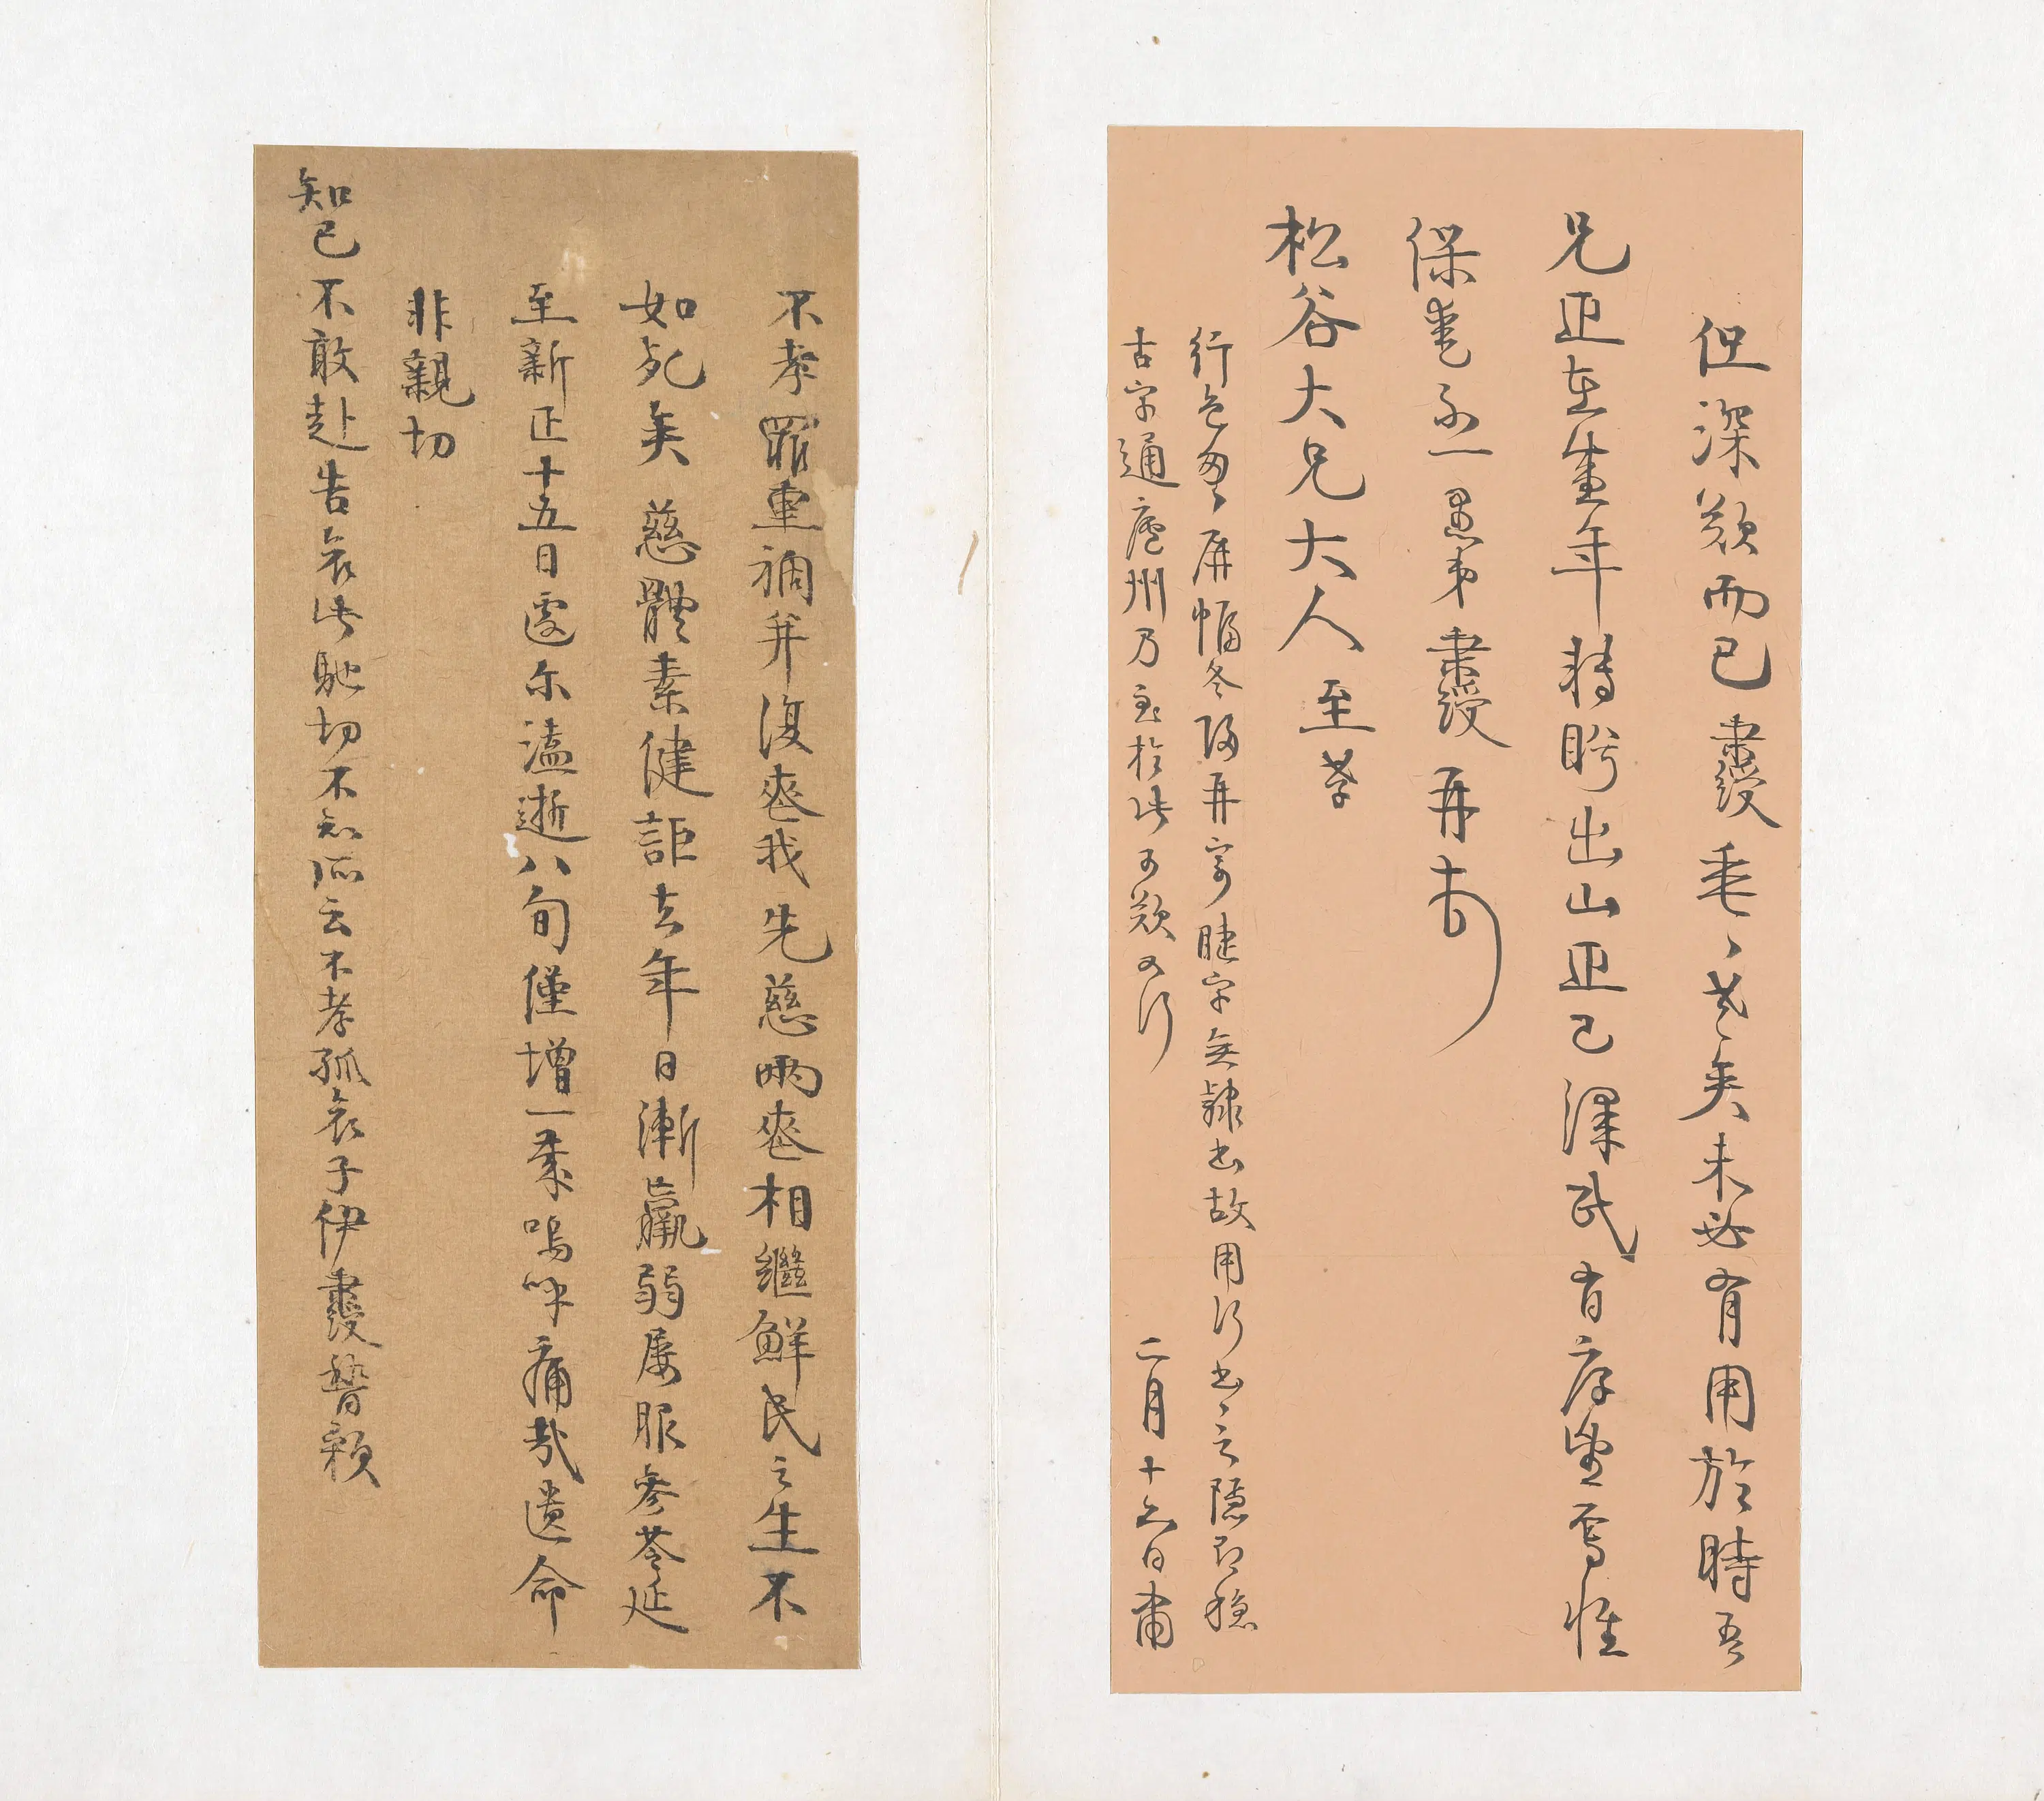 但深歎而已秉綬垂〻老矣未必有用於時吾
兄正在盛年轉盻出山正己澤民有厚望焉惟
保重不一愚弟秉綬再頓
松谷大兄大人至孝
行色匆〻屏幅冬後再寄睫字無隸書故用行書之隱即穩
古字通廬州乃至於此可歎可行
二月十六日肅
不孝罪重禍并復喪我先慈兩喪相繼鮮民之生不
如死矣慈體素健詎去年日漸羸弱屢服參苓延
至新正十五日遽尔溘逝八旬僅增一歲嗚呼痛哉遺命
非親切
知己不敢赴告哀此馳切不知所云不孝孤哀子伊秉綬稽顙